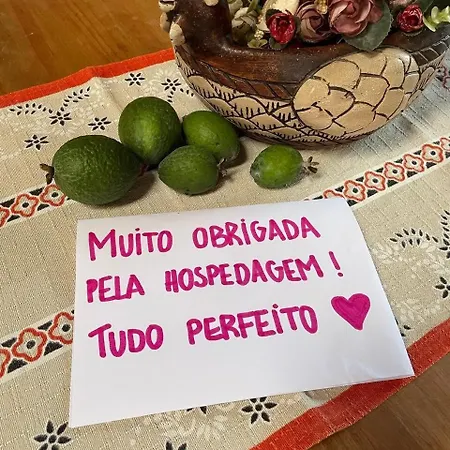 MUITO OBRIGADA
PELA HOSPEDAGEM!
TUDO PERFEITO